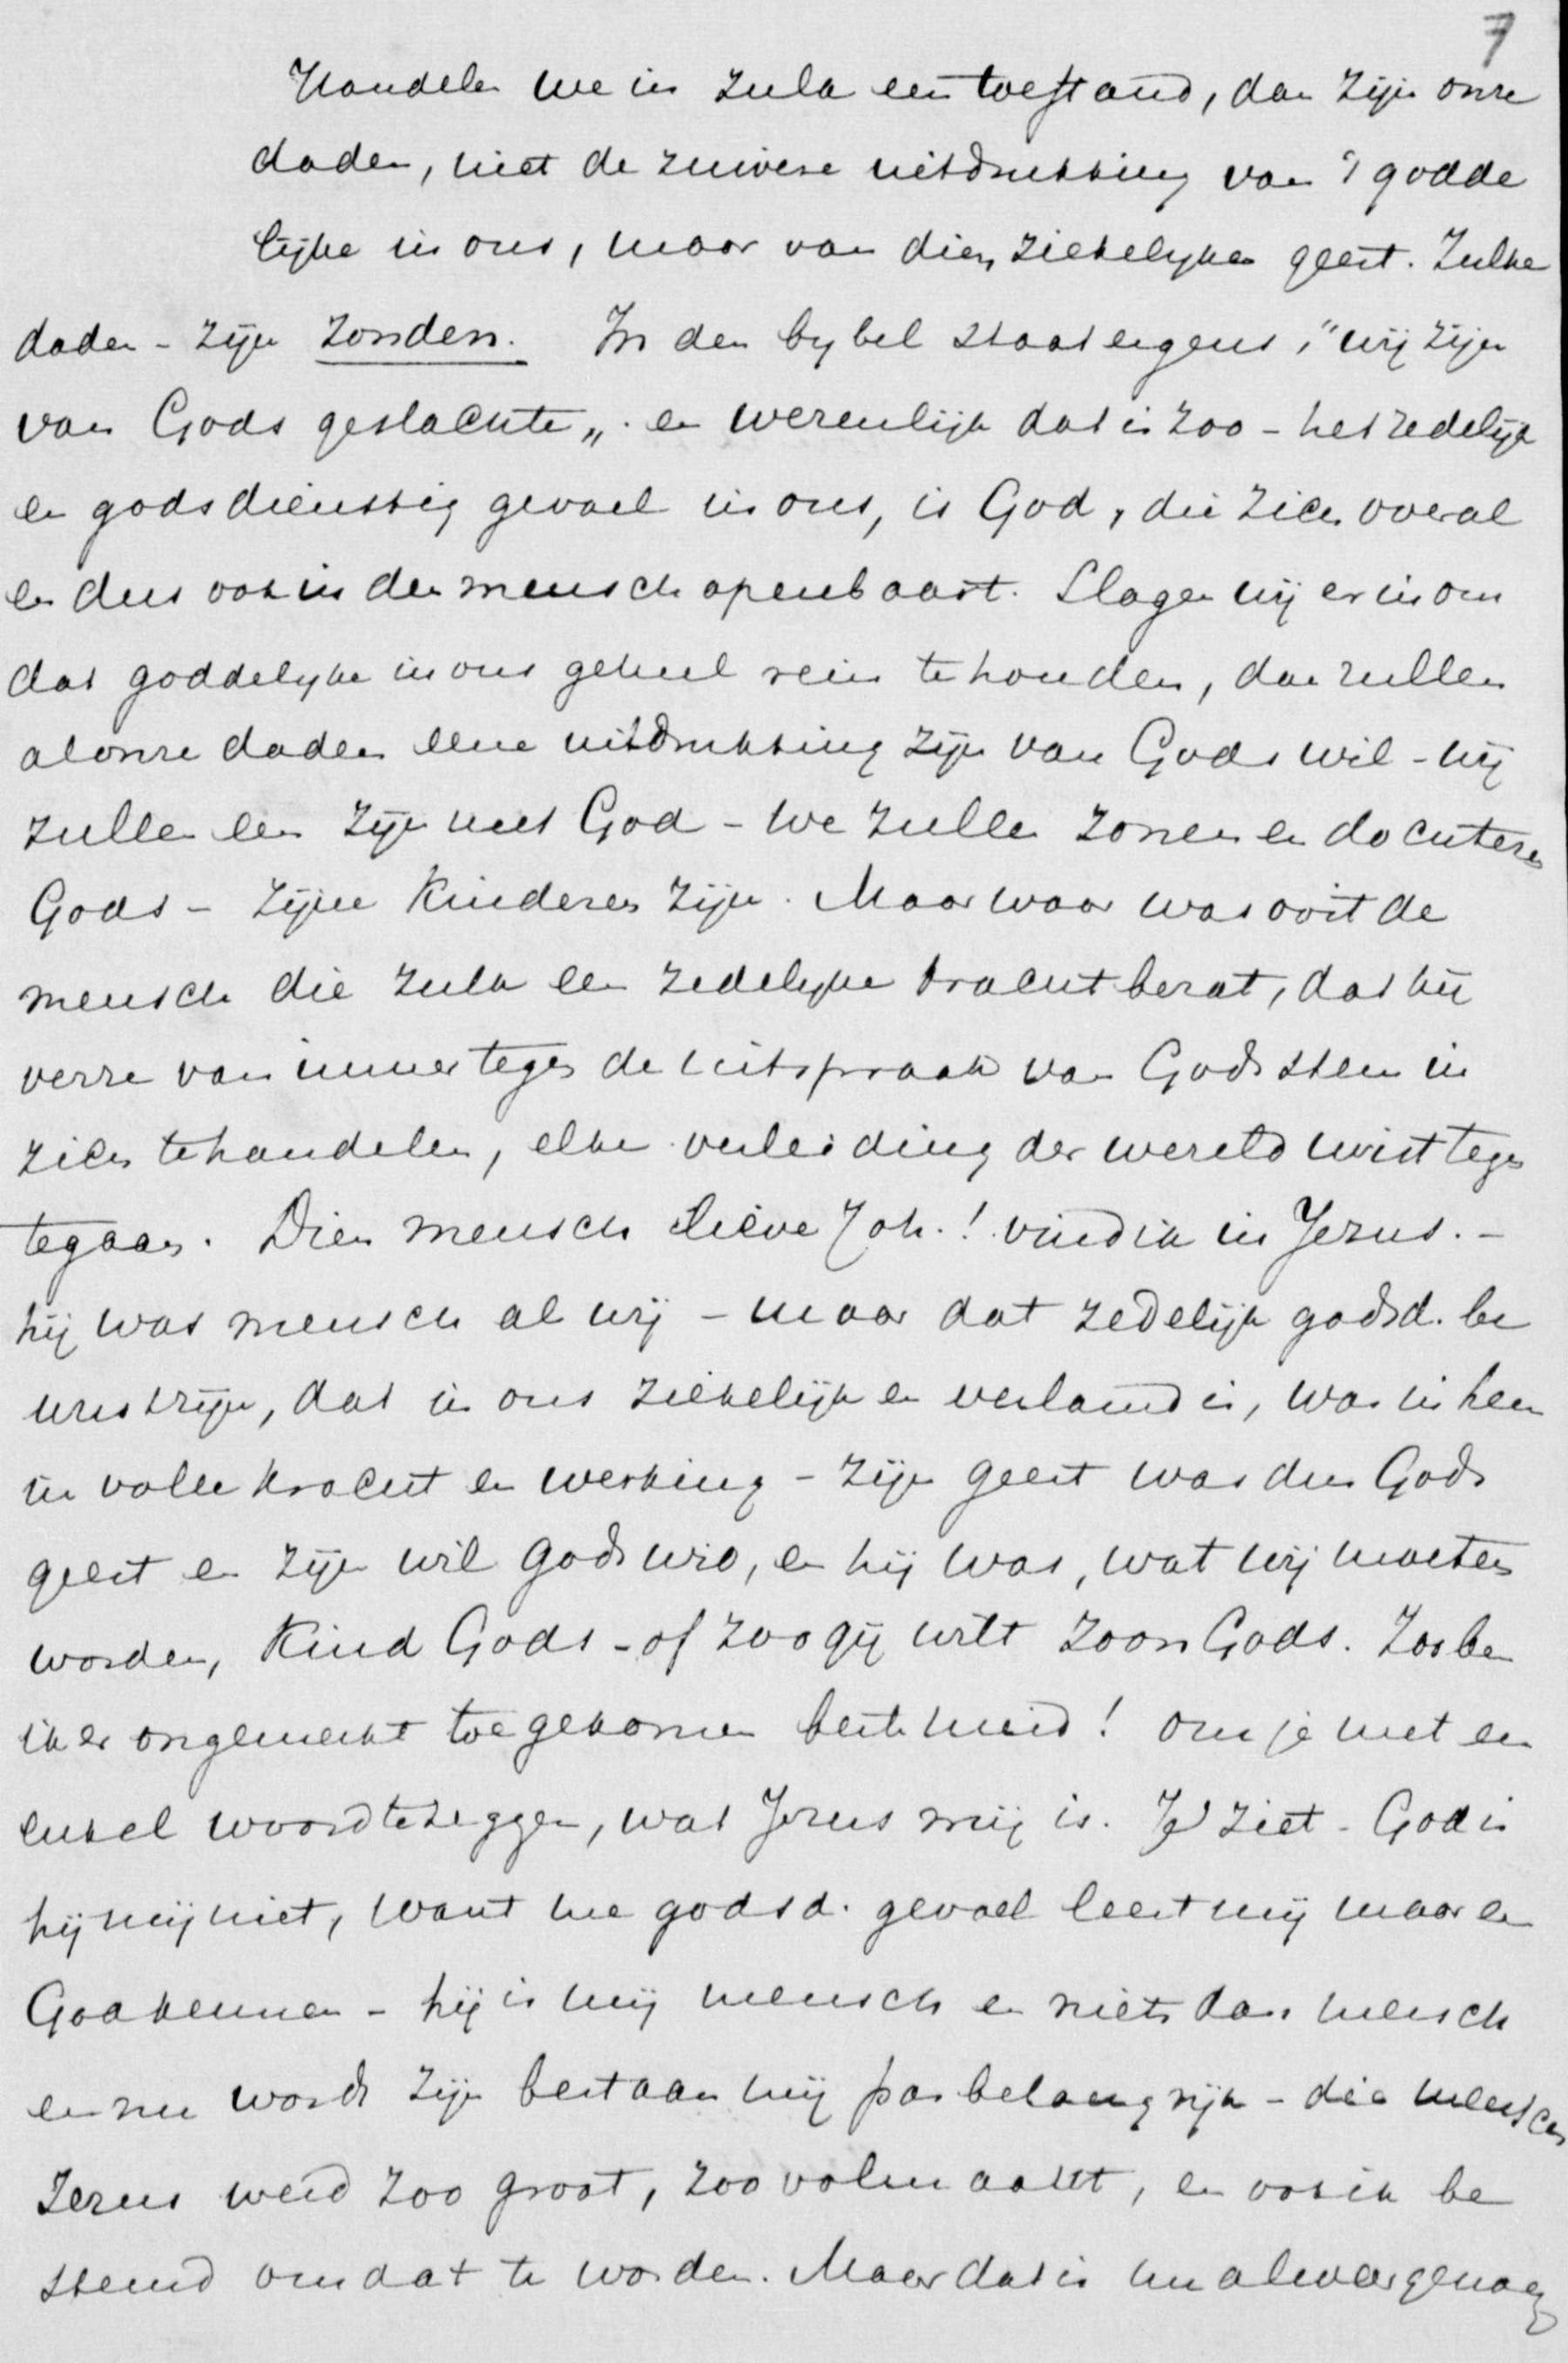 7
Handelen we in zulk een toestand, dan zijn onze
daden, niet de zuivere uitdrukking van 't godde
lijke in ons, maar van dien ziekelyken geest. Zulke
daden - zijn zonden. In den bybel staat ergens, "wij zijn
van Gods geslachte„. en wezenlijk dat is zoo - het zedelijk
en godsdienstig gevoel in ons, is God, die zich overal
en dus ook in den mensch openbaart. Slagen wij er in om
dat goddelyke in ons geheel rein te houden, dan zullen
al onze daden eene uitdrukking zijn van Gods wil - wij
zullen een zijn met God - we zullen zonen en dochteren
Gods - zijne Kinderen zijn. Maar waar was ooit de
mensch die zulk een zedelyke kracht bezat, dat hij
verre van immer tegen de uitspraak van Gods stem in
zich te handelen, elke verleiding der wereld wist tegen
te gaan. Dien mensch lieve Joh.! vind ik in Jezus. -
hij was mensch al wij - maar dat zedelijk godsd. be
wustzijn, dat in ons ziekelijk en verlamd is, was in hem
in volle kracht en werking - zijn geest was dus Gods
geest en zijn wil Gods wil, en hij was, wat wij moeten
worden, Kind Gods - of zoo gij wilt Zoon Gods. Zoo ben
ik er ongemerkt toe gekomen beste meid! om je met een
enkel woord te zeggen, wat Jezus mij is. Je ziet - God is
hij mij niet, want me godsd. gevoel leert mij maar een
God kennen - hij is mij mensch en niets dan mensch
en nu wordt zijn bestaan mij pas belangrijk - die mensch
Jezus werd zoo groot, zoo volmaakt, en ook ik be
stemd om dat te worden. Maar dat is nu alweer genoeg